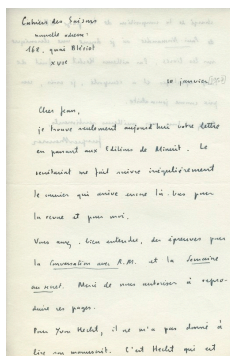 Cahiers des Saisons
nouvelle adresse:
168, quai Blériot
XVIe
30 janvier
Cher Jean,
je trouve seulement aujourd'hui votre lettre
en passant aux Editions de Minuit. Le
secrétariat me fait suivre irrégulièrement
le courrier qui arrive encore là-bas pour
la revue et pour moi.
Vous aurez, bien entendu, des épreuves pour
la Conversation avec R.M. et la Semaine
au secret. Merci de nous autoriser à repro-
duire ces pages.
Pour Yvon Hecht, il ne m'a pas donné à
lire son manuscrit. C'est Hecht qui est